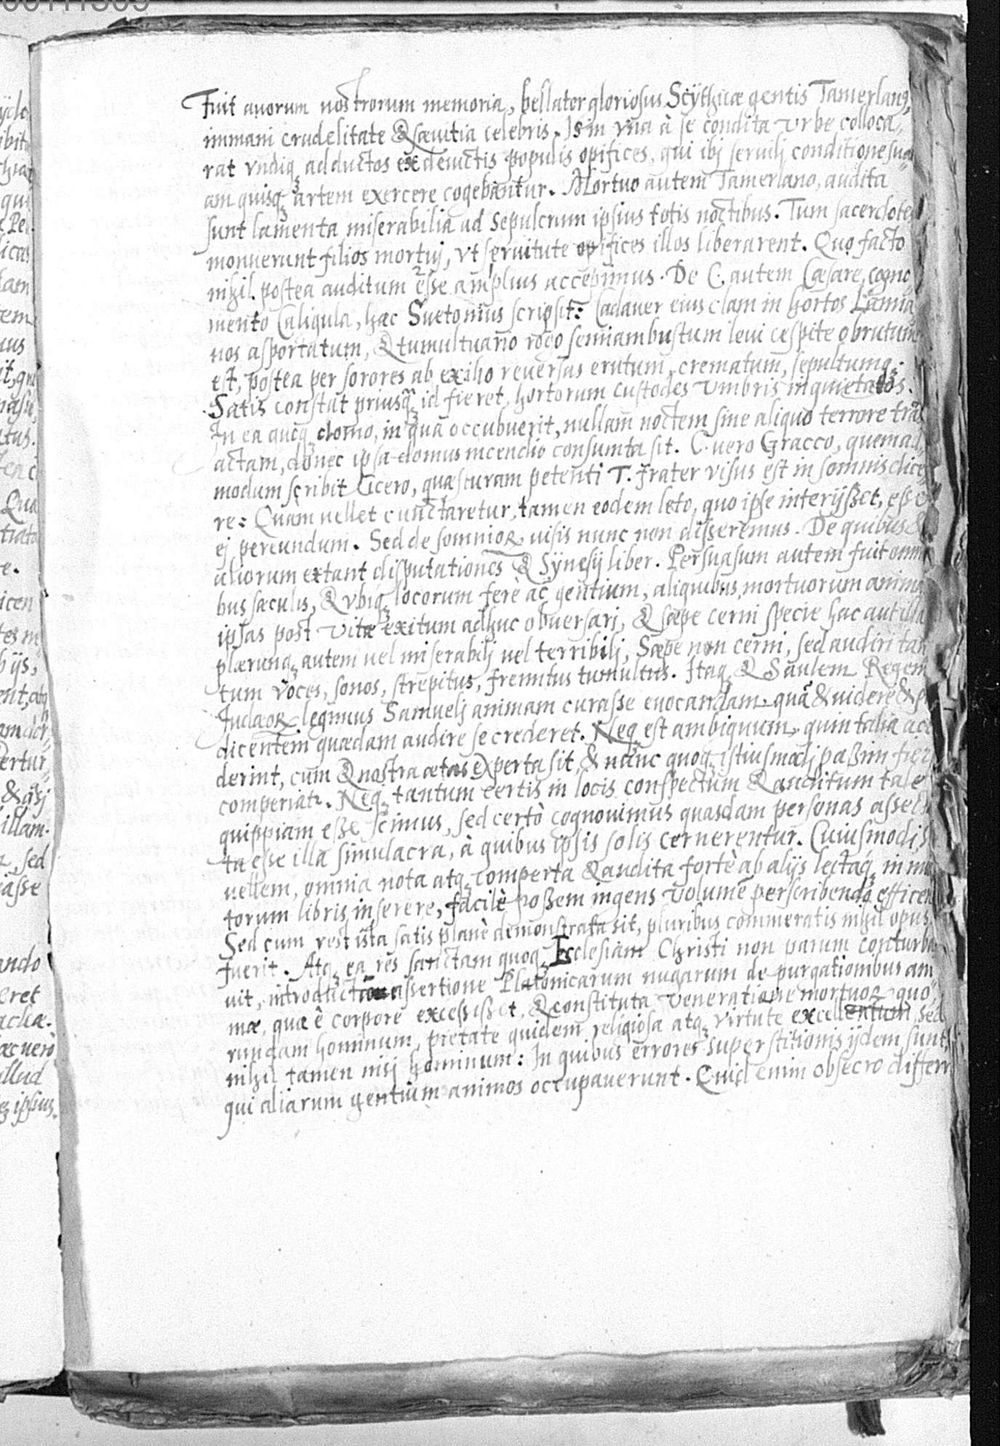 Fuit auorum nostrorum memoria, bellator gloriosus Scythicæ gentis Tamerlang,
immani crudelitate & sæuitia celebris. Is in vna à se condita vrbe colloca,,
rat vndiq adductos ex deuictis populis opifices, qui ibj seruilj conditione su
am quisq artem exercere cogebantur. Mortuo autem Tamerlano, audita
sunt lamenta miserabilia ad sepulcrum ipsius totis noctibus. Tum sacerdotes
monuerunt filios mortuj, vt seruitute opifices illos liberarent. Quo facto
nihil postea auditum esse amplius accepimus. De C. autem Cæsare, cogno
mento Caligula, hæc Suetonius scripsit: Cadauer eius clam in hortos Lamia
nos asportatum, & tumultuario rogo semiambustum leui cespite obrutum
est, postea per sorores ab exilio reuersas erutum, crematum, sepultumq:
Satis constat priusq id fieret, hortorum custodes vmbris inquietatos.
In ea quoq domo, in qua occubuerit, nullam noctem sine aliquo terrore tra
actam, donec ipsa domus incendio consumta sit. C. vero Gracco, quemad,
modum scribit Cicero, quæsturam petenti T. frater visus est in somnis dice
re: Quam vellet cunctaretur, tamen eodem leto, quo ipse interijsset, esse
ej pereundum. Sed de somnior visis nunc non disseremus. De quibus &
aliorum extant disputationes & Synesij liber. Persuasum autem fuit omni
bus sæculis, & vbiq locorum ferè ac gentium, aliquibus mortuorum anim
ipsas post vitæ exitum adhuc obuersarj, & sæpe cerni specie hac aut illa
plærunq autem vel miserabilj vel terribilj, Sæpe non cerni, sed audiri tan
tum voces, sonos, strepitus, fremitus tumultus. Itaq & Saulem Regem
Judæor legimus Samuelj animam curasse euocandam quã & videre &
dicentem quædam audire se crederet. Neq est ambiguum, quin talia ac
derint, cum & nostra ætas experta sit, & nunc quoq istiusmodj passim fier
comperiat. Neq tantum certis in locis conspectum & auditum tale
quippiam esse scimus, sed certò cognouimus quasdam personas
ta esse illa simulacra, à quibus ipsis solis cernerentur. Cuiusmodj s
vellem, omnia nota atq comperta & audita fortè ab alijs lectaq in mu
torum libris inserere, facilè possem ingens volumē perscribendo efficere
Sed cum res ista satis planè demonstrata sit, pluribus commeratis nihil opus
fuerit. Atq ea res sanctam quoq Ecclesiam Christi non parum conturba
uit, introducta assertione Platonicarum nugarum de purgationibus ani
mæ, quæ è corpore excessisset, & constituta veneratione mortuor quo,
rundam hominum, pietate quidem religiosa atq virtute excellentium, sed
nihil tamen nisj hominum: In quibus errores superstitionis ijdem sunt
qui aliarum gentium animos occupauerunt. Quid enim obsecro differr